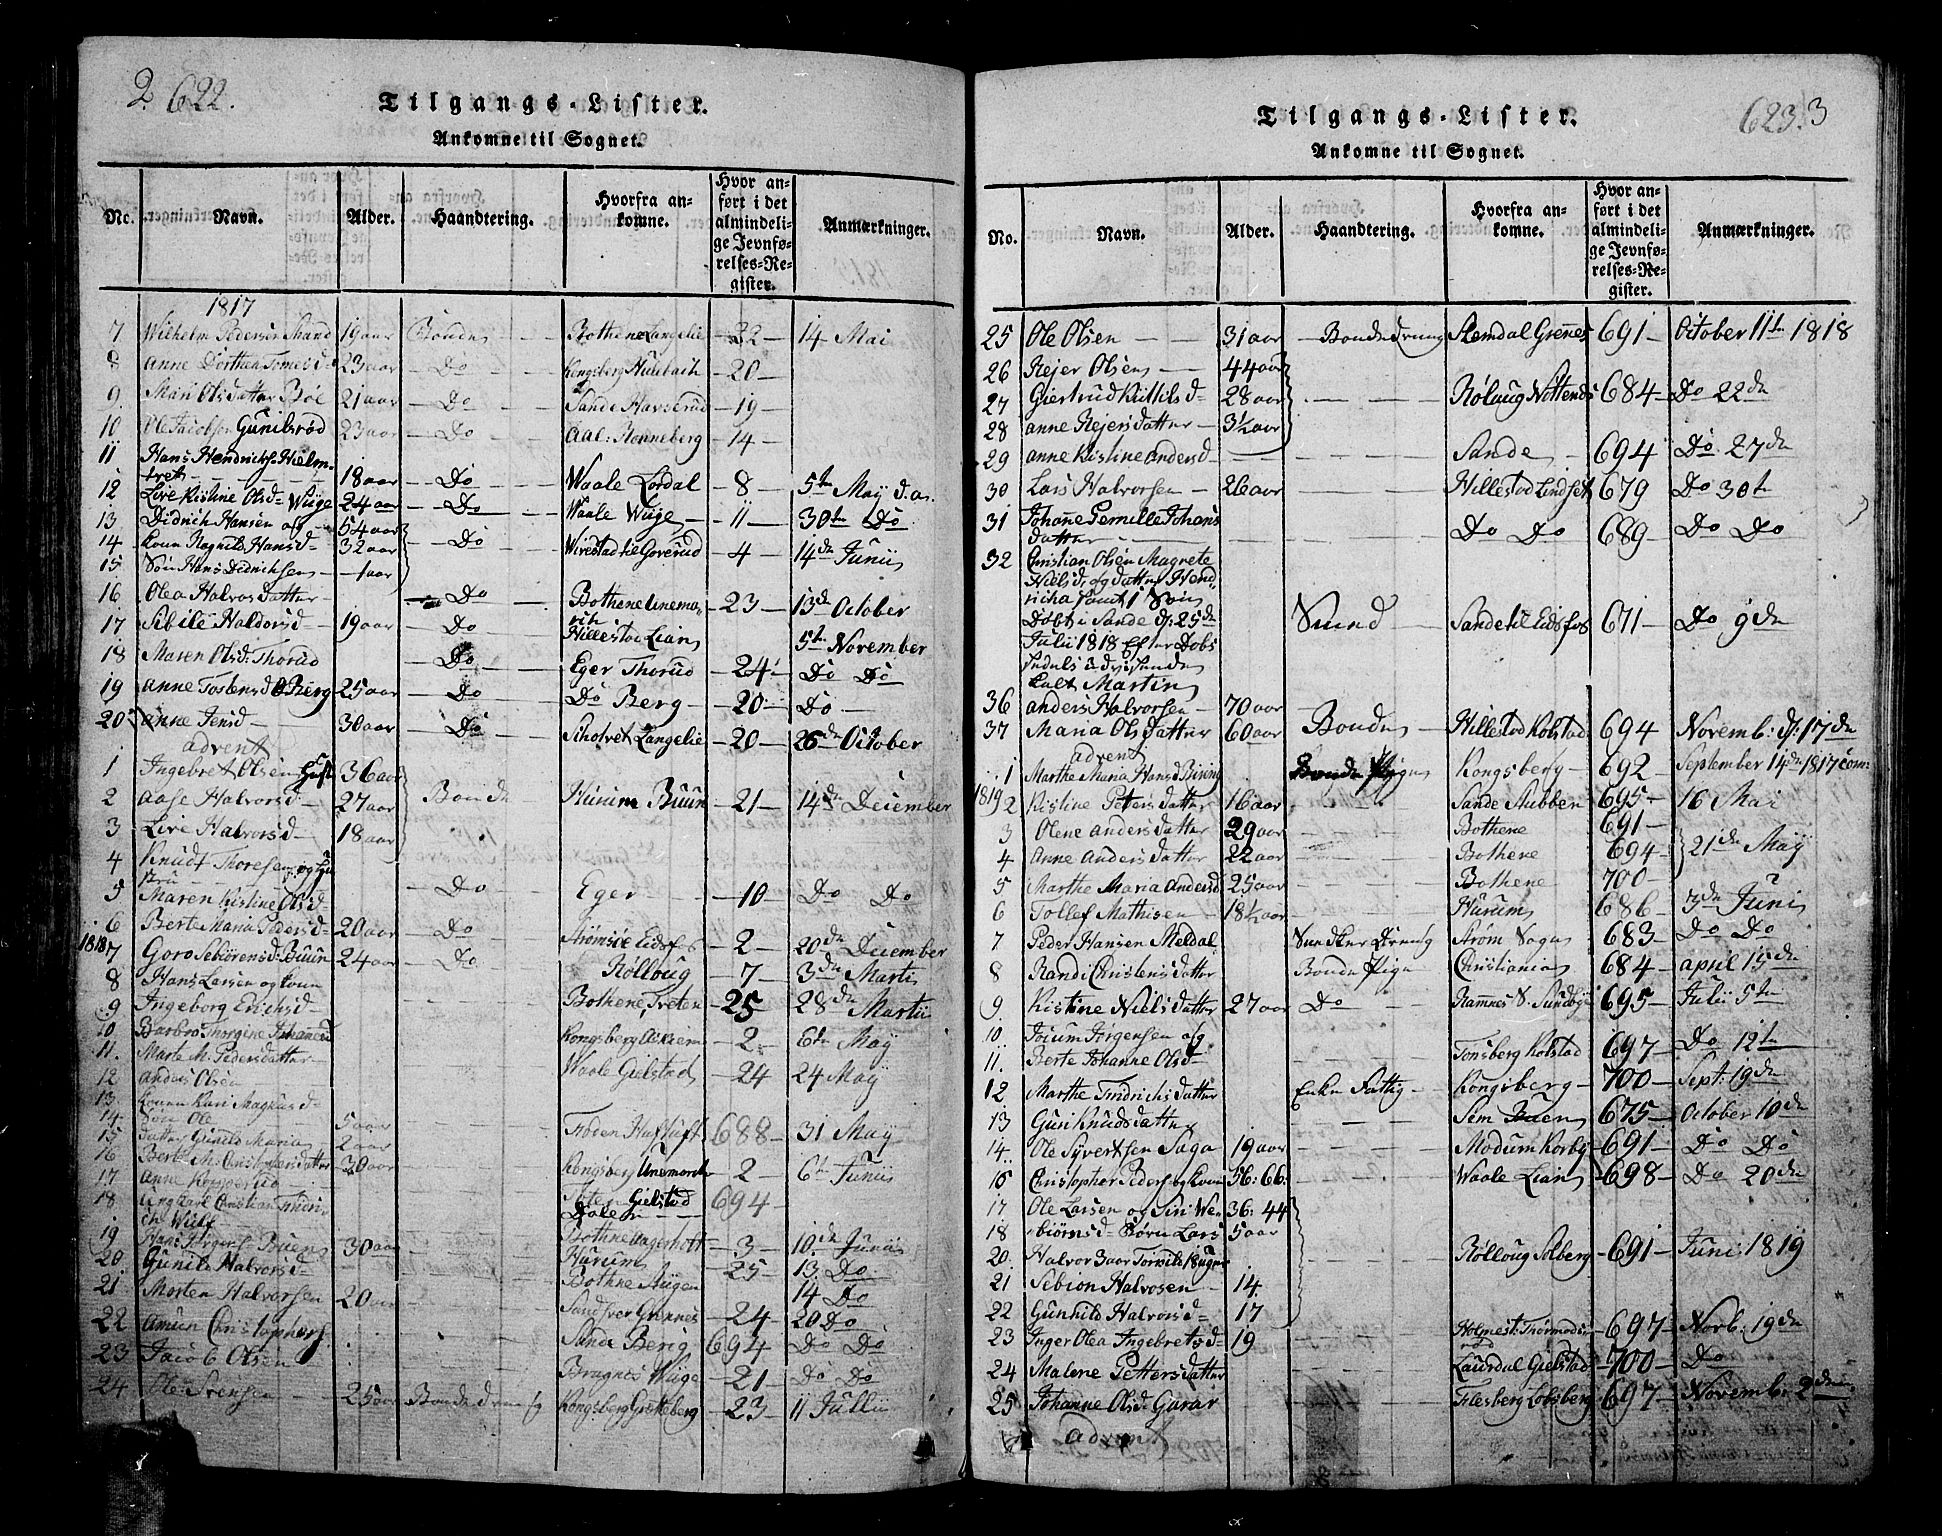 2 622.
Tilgangs-Lister.
Ankomne til Sognet.
No. Navn. Alder. Haandtering. Hvorfra ankomne. Hvor anført i det almindelige Jevnførelses-Register. Anmærkninger.
1817
7 Wilhelm Pedersen Strand 19 aar Bonden Bothene Langelie 22 14 Mai
8 Anne Dorthea Tomesd 23 aar Do Kongsberg 20
9 Mari Olsdatter Bøe 21 aar Do Sande Haverud 19
10 Ole Jacobsen Gunilsrød 23 aar Do Aal: Renneberg 14
11 Hans Hendrichs: Hielm-
tvet 18 aar Do Waale Lordal 8 5te May d.a.
12 Live Kistine Olsd Wiige 24 aar Do Waale Wiige 11 30te Do
13 Didrich Hansen og 54 aar
14 Kone Regnild Hansd 32 aar Do Wivestad til Goverud 4 14de Junii
15 Søn Hans Didrichsen 1 aar
16 Olea Halvorsdatter Do Bothene Unema- 23 13de October
17 Sibile Haldorsd 19 aar Do Hillestad Lian 5te November
18 Maren Olsd: Thorud Do Eger Thorud 24 Do Do
19 Anne Tostensd Berg 25 aar Do Do Berg 20 Do
20 Anne Jensd 30 aar Do Langelie 20 26de October
advent
1 Ingebret Olsen 36 aar
2 Aase Halvorsd 27 aar Bonde Hurum Buun 21 14de December
3 Live Halvorsd 18 aar
4 Knudt Thoresen og
5 Maren Kistine Olsd Do Eger 10 Do Do
6 Berte Maria Pedersd 20 aar Do Strømsøe Eidsfos 2 20de December
1818
7 Goro Sebiørensd: Buun 24 aar Do Rølloug 7 3de Marti
8 Hans Larsen og Kone
9 Ingeborg Erichsd Bothene Treten 25 28de Martii
10 Barbro Thorgine Johanesd Kongsberg 2 6te May
11. Marte M. Pedersdatter
12 Anders Olsen Waale Gielstad 24 24 May
13. Konen Kari Magnusd
14. Søn Ole 5 aar
15 Datter Gunild Maria 2 aar Foden 688 31 May
16 Berte M. Christensdatter 30 aar Kongsberg Unemark 2 6te Junii
17 Anne
18 Ungkarl Christian Fridri-
ch Wulf Gielstad 694
19 Hans Jørgens Buen 30 aar Bothne 3 10de Junii
20. Gunild Halvorsd Hurum 25 13. Do
21 Morten Halvorsen 20 aar Bothne 14 Do
22 Amun Christophers Sandsver Grennes 24 20 Do
23 Jacob Olsen Sande Berig 694 Do Do
Bragnes Wiige 21 Do Do
24 Ole Svensen 25 aar Bondedreng Kongsberg 23 11 Jullii
623. 3
Tilgangs-Lister.
Ankomne til Sognet.
No. Navn. Alder. Haandtering. Hvorfra ankomne. Hvor anført i det almindelige Jevnførelses-Register. Anmærkninger.
25 Ole Olsen 31 aar Bondedreng Slemdal Grenes 691 October 11te 1818
26 Rejer Olsen 44 aar
27 Giertrud Kittilsd 28 aar Rølaug Nøttende 684 Do 22de
28 Anne Rejersdatter 3½ aar
29 Anne Kistine Andersd Sande 694 Do 27de
30 Lars Halvorsen 26 aar Hillestad Lindset 679 Do 30te
31 Johanne Pernille Johans-
datter Do Do 689 Do Do
32 Christian Olsen Magrete
Nielsd, og datter Hend-
richa samt 1 Søn
Døbt i Sande d: 25de Smed Sande til Eidsfos 671 Do 9de
Julii 1818 Efter Dobs
sedels udvisende
kalt Martin
36 Anders Halvorsen 70 aar
37 Maria Olsdatter 60 aar Bonden Hillestad Kolstad 694 Novemb: d: 17de
advent
1 Marthe Maria Hansd Bising Bonde Pige Kongsberg 692 September 14de 1817 com:
1819
2 Kistine Petersdatter 16 aar Sande Stubben 695 16 Mai
3 Olene Andersdatter 29 aar Bothene 691
4 Anne Andersdatter 22 aar Bothene 694 21de May
5 Marthe Maria Andersd 25 aar Bothene 700
6 Tollef Mathisen 18½ aar Hurum 686 3de Juni
7 Peder Hansen Meldal Smeddreng Strøm Sogn 683 Do Do
8 Randi Christensdatter Bonde Pige Christiania 684 April 15de
9. Kistine Nielsdatter 27 aar Do Ramnes S. Sundbye 695 Julii 5te
10. Joium Jørgensen og
11. Berte Johanne Olsd Tonsberg Kolstad 697 Do 12te
12 Marthe Fridrichsdatter Enke Fattig Kongsberg 700 Sept: 19de
13 Guri Knudsdatter Sem Buen 675 October 10de
14. Ole Syvertsen Saga 19 aar Modum Korby 691 Do Do
15 Christopher Peders og Kone 56: 66: Waale Lian 698 Do 20de
17 Ole Larsen og Siri We- 36: 44
18 biørnsd Søren Lars 5 aar
20. Halvor Rølloug Solberg 691 Juni 1819
21 Sebion Halvosen 14.
22 Gunhild Halvorsd 17
23 Inger Olea Ingebretsd 19 Holmest: Thormods-
rød 697 Novb: 19de
24 Malene Pettersdatter Laurdal Gielstad 700 Do
25 Johanne Olsd: Garar Flesberg Lobsberg 697 November 2den
advent